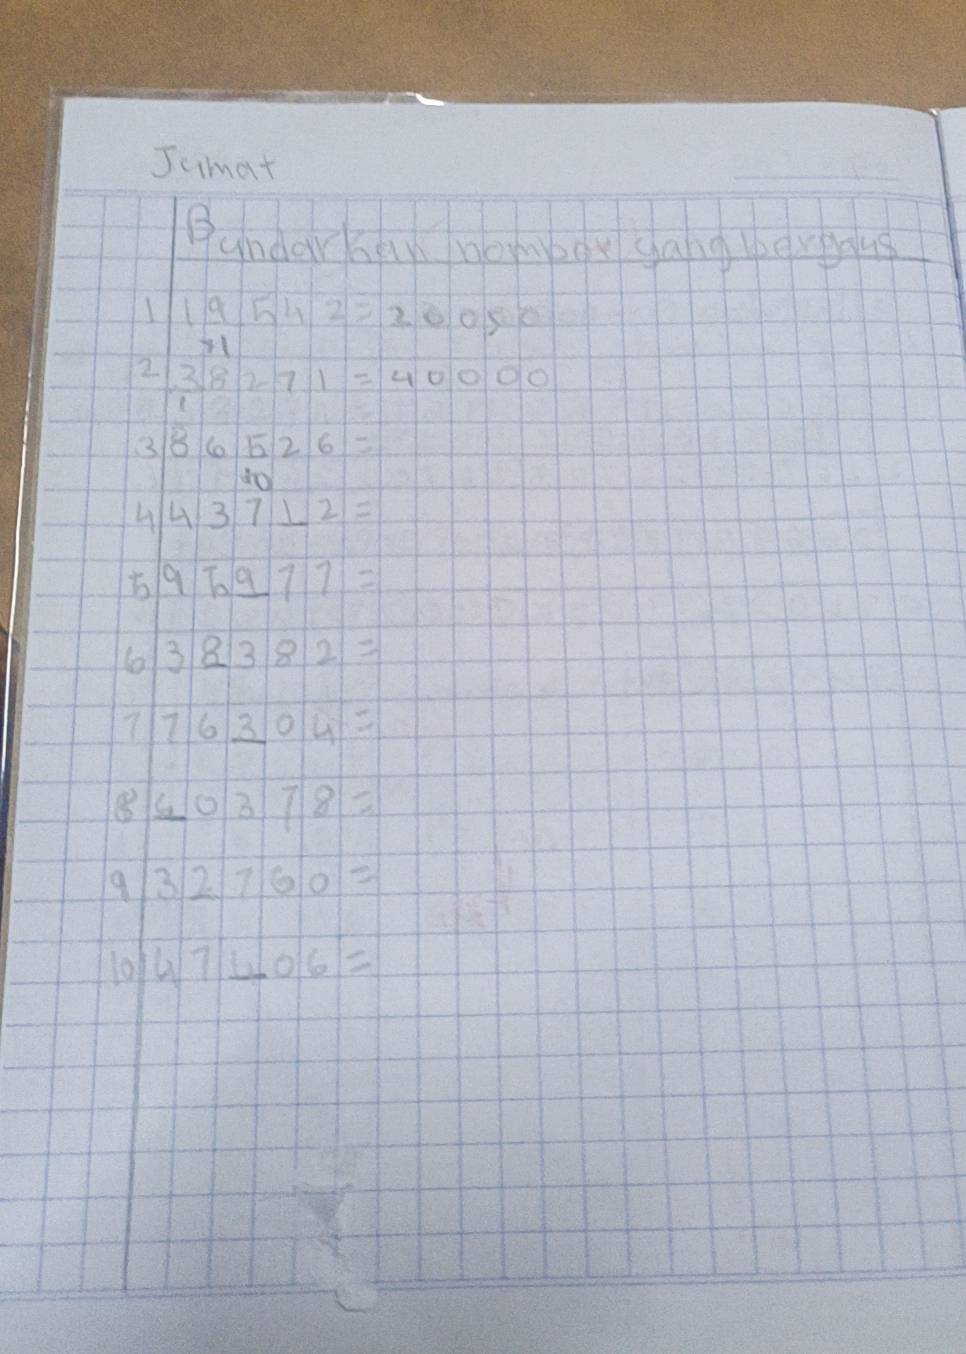 Jumat
Bundarkan nomber yang bergaris
1 19542 = 20050
+1
2 38271 = 40000
3 86526 =
+0
4 43712 =
5 95977 =
6 38382 =
7 76304 =
8 40378 =
9 32760 =
10 47406 =